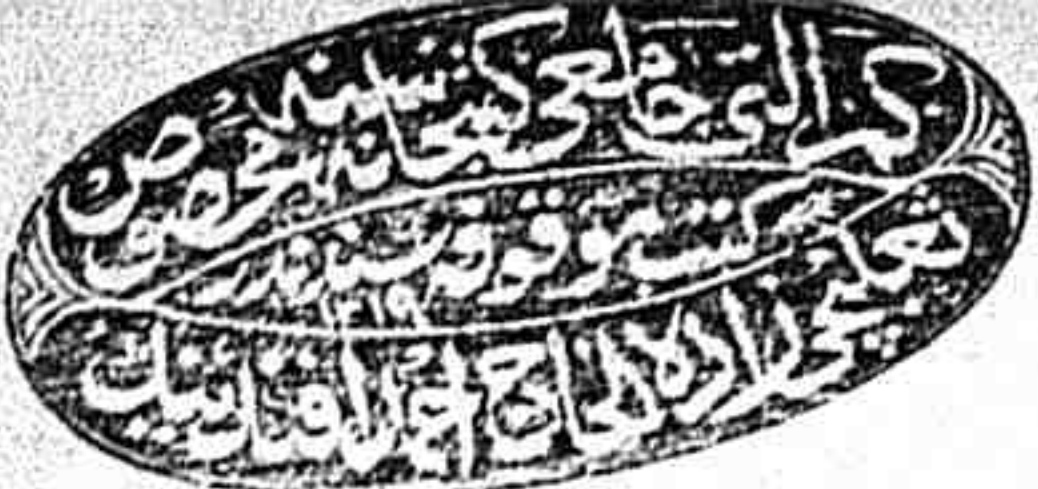 كمر التى جامعى كتبخانه سنه مخصوص
كتب موقوفه سندندر
زاده الحاج احمد افندينك